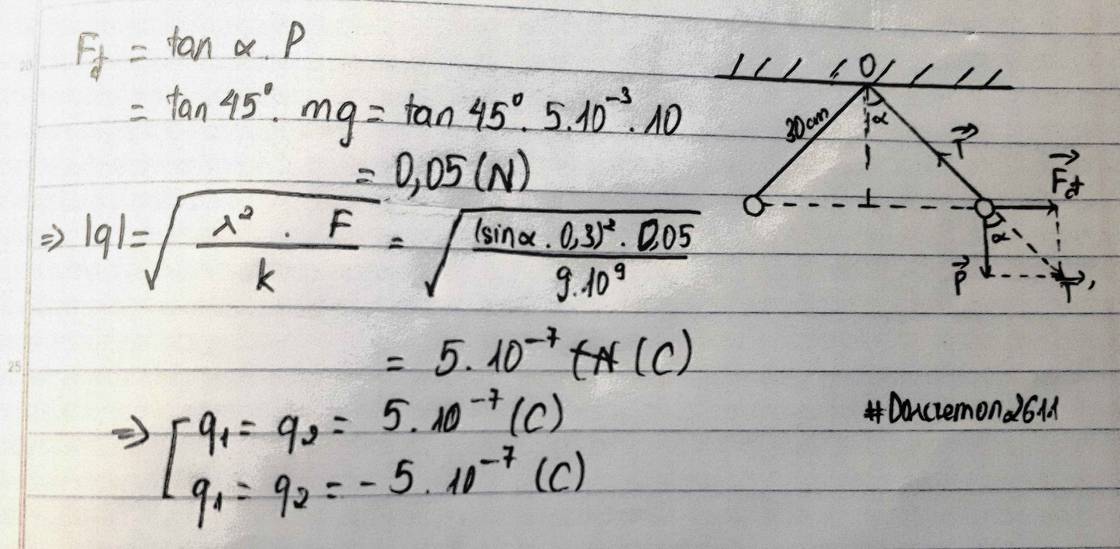 F_đ = tan α . P
= tan 45° . mg = tan 45° . 5.10⁻³.10
= 0,05 (N)
⇒ |q| = √(r² . F / k) = √((sinα . 0,3)² . 0,05 / 9.10⁹)
= 5.10⁻⁷ (C)
⇒ [ q₁ = q₂ = 5.10⁻⁷ (C)
q₁ = q₂ = - 5.10⁻⁷ (C)
O
30cm
α
T
F_đ
α
P
T'